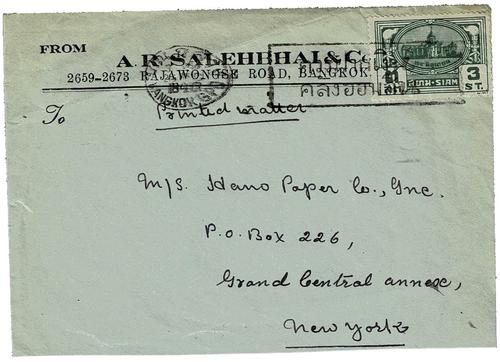 FROM
A. R. SALEHBHAI & Co
2659-2673 RAJAWONGSE ROAD, BANGKOK
BANGKOK
SIAM
3
ST.
To
Printed Matter
M/S. Hano Paper Co., Inc.
P.O. Box 226,
Grand Central annexe,
New York